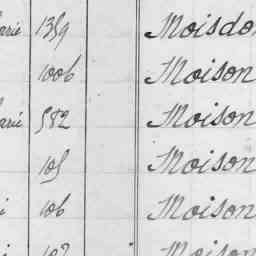 arie 1359 Moisdo
1006 Moison
arie 582 Moison
105 Moison
i 106 Moison
i 107 Moison